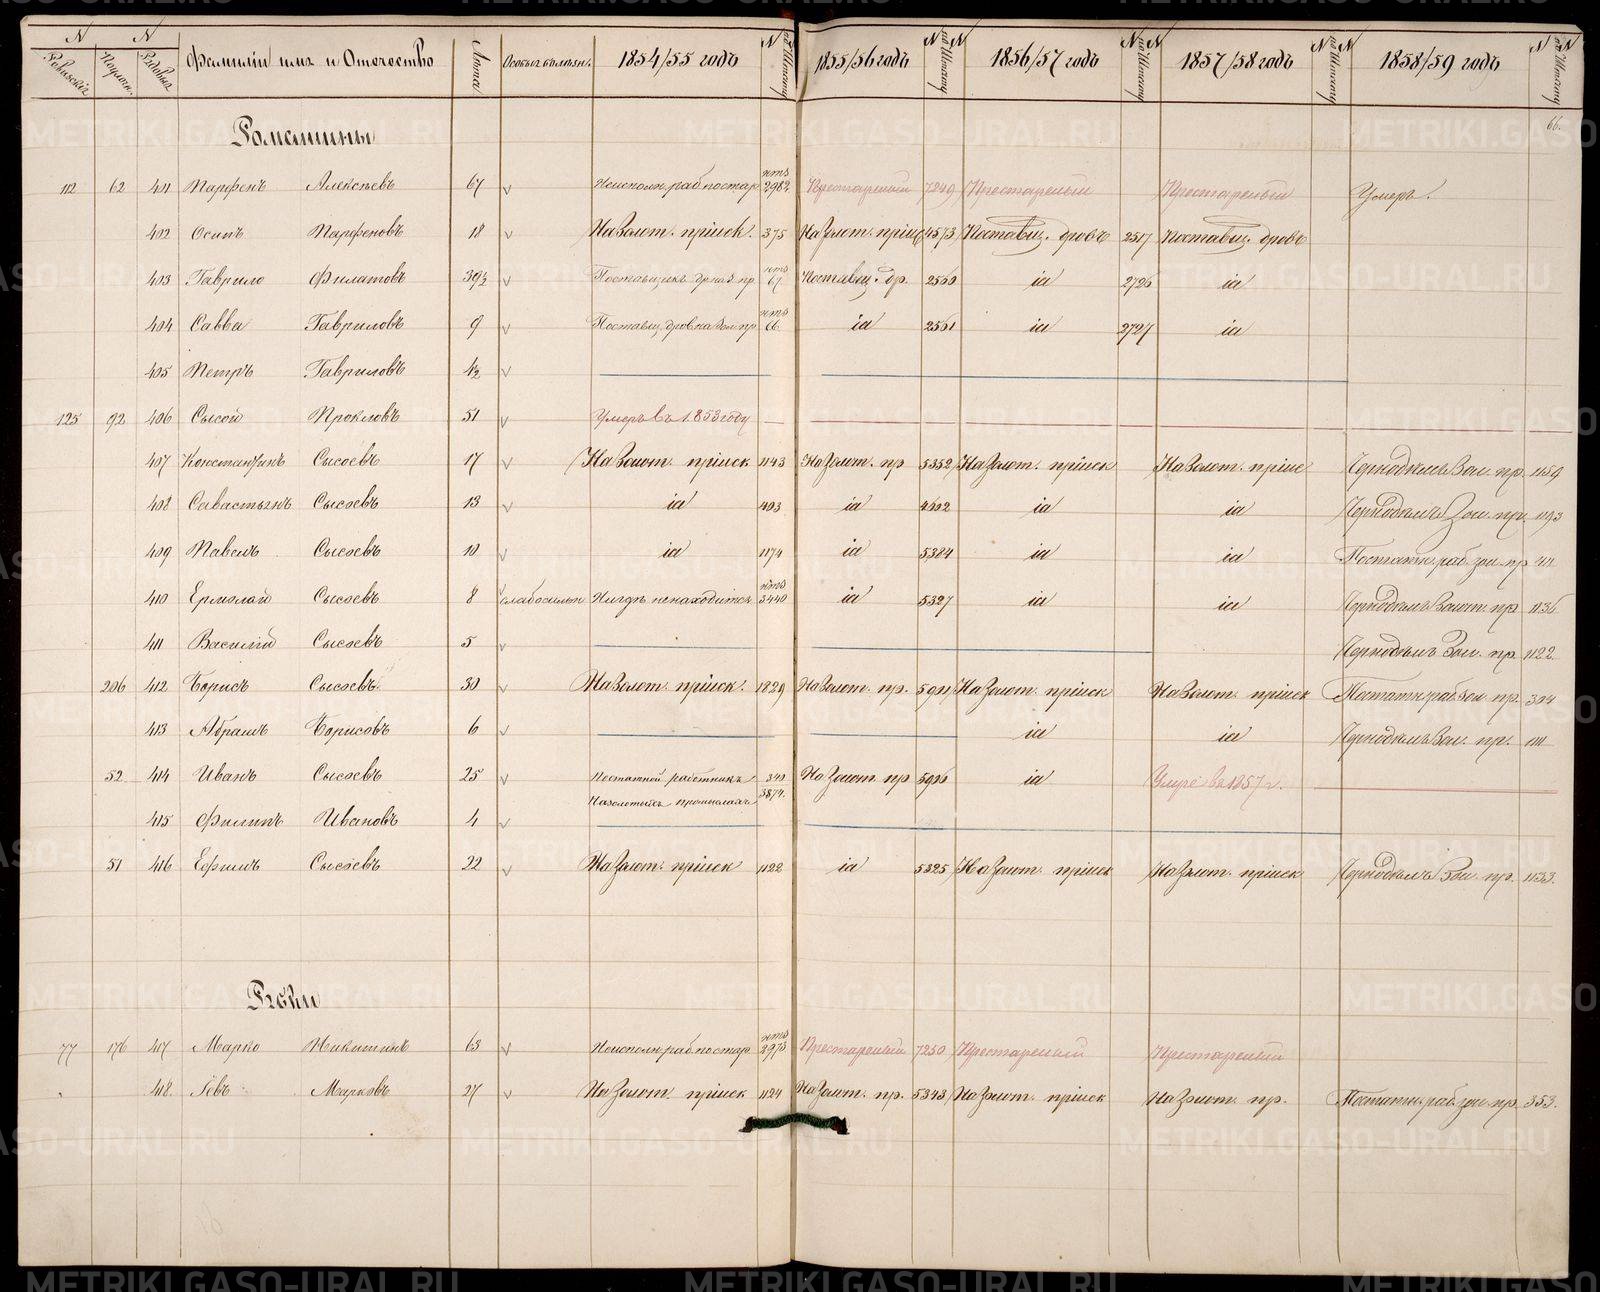 N N Фамиліи имя и Отечество Лета Особыя болѣзн. 1854/55 годъ N по Списку 1855/56 годъ N по Списку N 1856/57 годъ N по Списку N 1857/58 годъ N по Списку N 1858/59 годъ N по Списку
Ревизскій Рядовыя
66.
Ромашины
112 62 401 Парфенъ Алексѣевъ 67 v Неисполн. раб. по стар 2982 Престарелый 7249 Престарелый Престарелый Умеръ.
402 Осипъ Парфеновъ 18 v На золот. пріиск. 375 На золот. пріис 4573 Поставщ. дровъ 2517 Поставщ. дровъ
403 Гаврило Филатовъ 39½ v Поставщикъ дров. пр 67 Поставщ. др. 2560 ід 2726 ід
404 Савва Гавриловъ 9 v Поставщ. дров на Зол. пр 66 ід 2561 ід 2727 ід
405 Петръ Гавриловъ ½ v
125 92 406 Сысой Прокловъ 51 v Умеръ въ 1853 году
407 Константинъ Сысоевъ 17 v На золот. пріиск 1143 На Золот. пр 5352 На Золот. пріиск На золот. пріис Чернодѣлъ Зол. пр. 1159
408 Савастьянъ Сысоевъ 13 v ід 1103 ід 4602 ід ід Чернодѣлъ Зол. пр. 1193
409 Павелъ Сысоевъ 10 v ід 1174 ід 5384 ід ід Постатн. раб. зол. пр 411
410 Ермолай Сысоевъ 8 v слабосилен Нигдѣ не находится 3440 ід 5327 ід ід Чернодѣлъ Золот. пр. 1136
411 Василій Сысоевъ 5 v Чернодѣлъ Зол. пр. 1122
206 412 Борисъ Сысоевъ 30 v На золот. пріиск. 1829 На золот. пр. 5911 На Золот. пріиск На золот. пріиск Постатн. раб. Зол. пр. 304
413 Абрамъ Борисовъ 6 v ід ід Чернодѣлъ Зол. пр. 1111
52 414 Иванъ Сысоевъ 25 v Постатной работникъ 340 На Золот. пр 5926 ід Умре въ 1857 г.
На золотыхъ промыслахъ 3874.
415 Филипъ Ивановъ 4 v
51 416 Ефимъ Сысоевъ 22 v На Золот. пріиск 1122 ід 5325 На Золот. пріиск На Золот. пріиск Чернодѣлъ Зол. пр. 1133.
77 176 417 Марко Никитинъ 63 v Неисполн. раб. по стар 2975 Престарелый 7250 Престарелый Престарелый
418 Левъ Марковъ 27 v На Золот. пріиск 1124 На Золот. пр. 5343 На Золот. пріиск На Золот. пр. Постатн. раб. зол. пр. 353.
METRIKI.GASO-URAL.RU